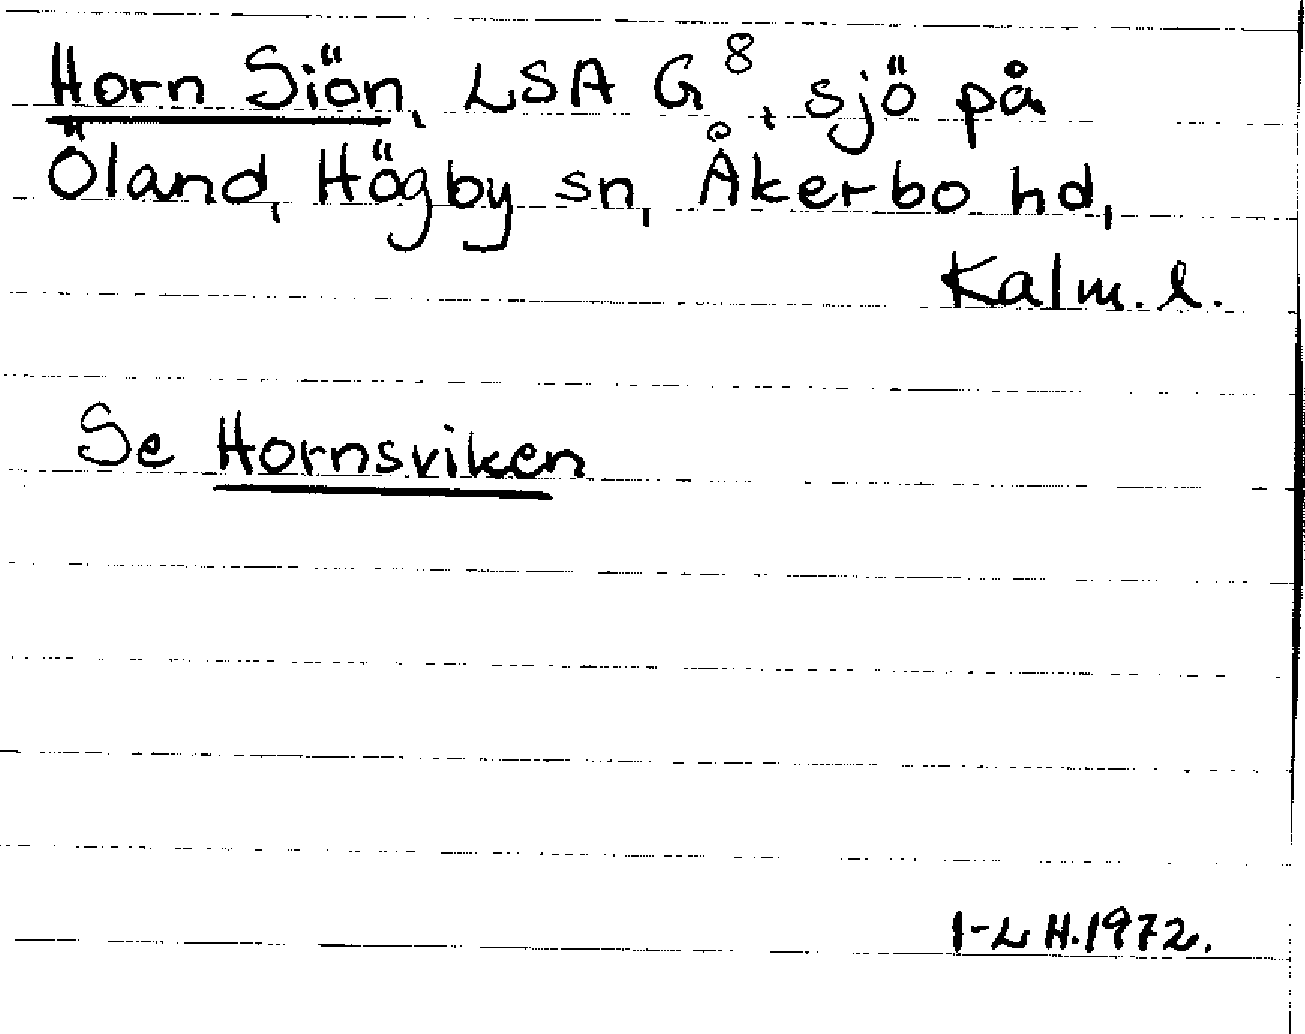 Horn Siön, LSA G⁸, sjö på
Öland, Högby sn, Åkerbo hd,
Kalm. l.
Se Hornsviken
I-LH.1972.